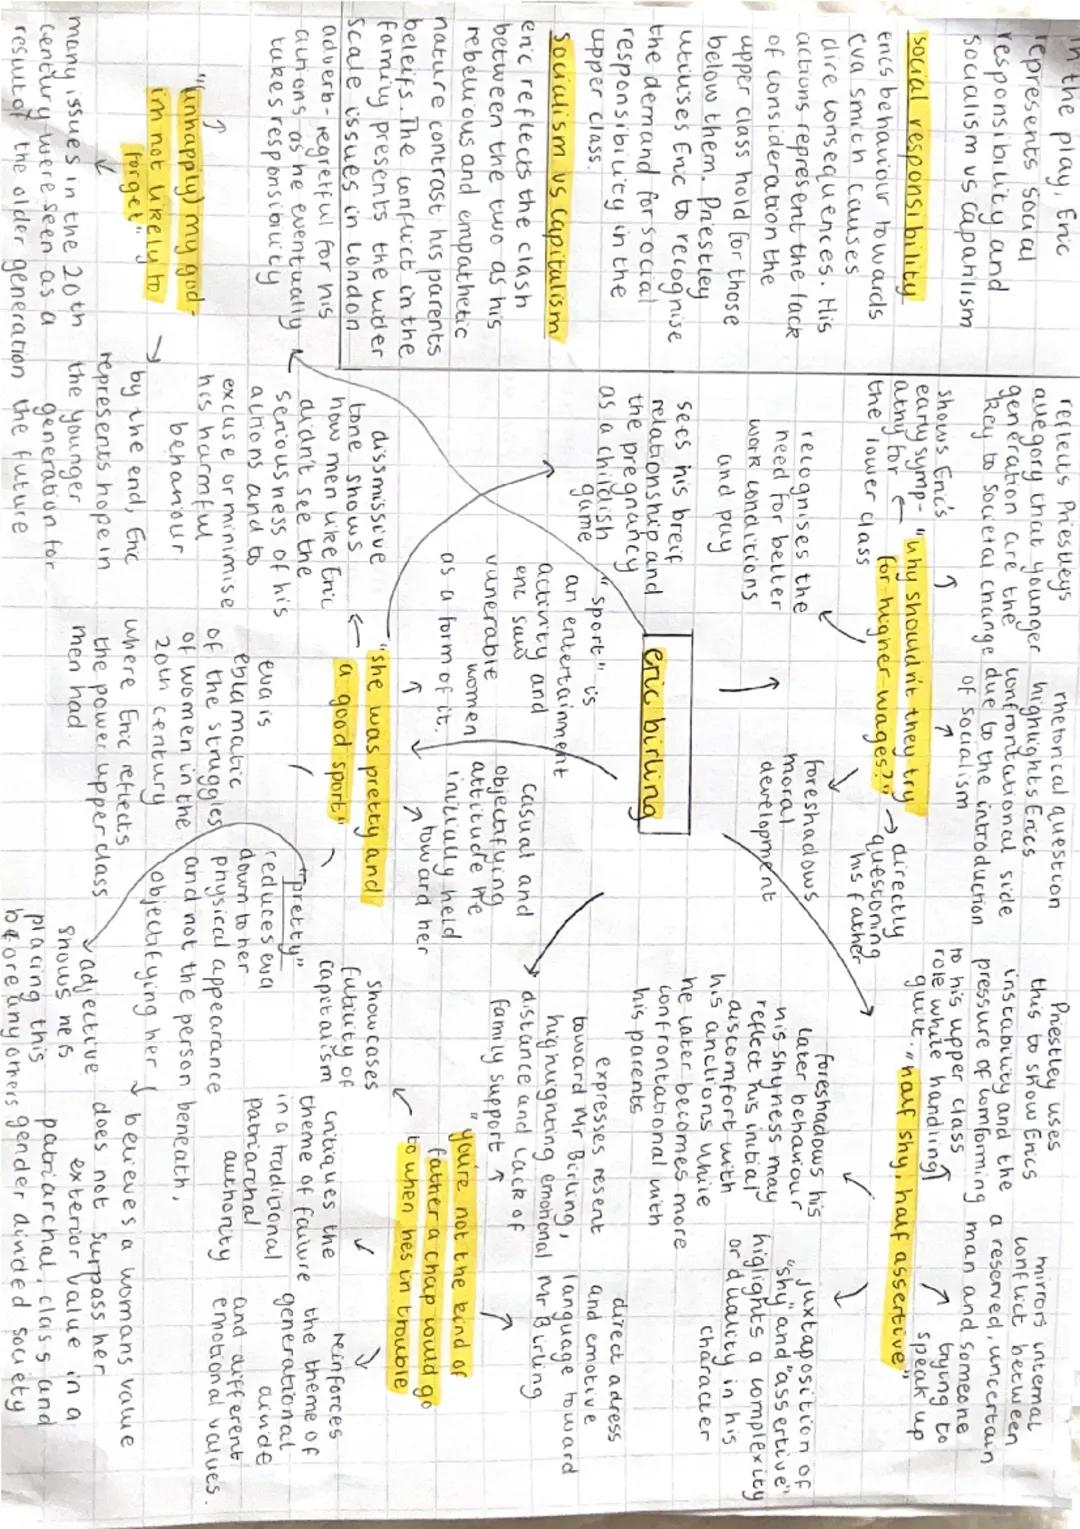 In the play, Eric
represents social
responsibility and
socialism vs capatilism
social responsibility
erics behaviour towards
eva smith causes
dire consequences. His
actions represent the lack
of consideration the
upper class hold for those
below them. Priestley
utilises Eric to recognise
the demand for social
responsibility in the
upper class.
socialism vs capitalism
eric reflects the clash
between the two as his
rebellious and empathetic
nature contrast his parents
beleifs. The conflict in the
family presents the wider
scale issues in london
adverb- regretful for his
actions as he eventually
takes responsibility
"(unhappily) my god-
im not likely to
forget"
many issues in the 20th
century were seen as a
result of the older generation
by the end, Eric
represents hope in
the younger
generation for
the future
reflects Priestleys
allegory that younger
generation are the
key to societal change due to the introduction
of socialism
rhetorical question
highlights Erics
confrontational side
shows Eric's
early symp-
athy for
the lower class
"why shouldn't they try
for higher wages?"
directly
questioning
his father
recognises the
need for better
work conditions
and pay
foreshadows
moral
development
eric birling
sees his breif
relationship and
the pregnancy
as a childish
game
"sport" is
an entertainment
activity and
eric saw
vunerable
women
as a form of it.
casual and
objectifying
attitude he
initially held
toward her
"she was pretty and
a good sport"
dismissive
tone shows
how men like Eric
didn't see the
seriousness of his
actions and to
excuse or minimise
his harmful
behaviour
eva is
eblematic
of the struggles
of women in the
20th century
where Eric reflects
the power upper class
men had
"pretty"
reduces eva
down to her
physical appearance
and not the person beneath,
objectifying her
adjective
shows he is
placing this
before any others
believes a womans value
does not surpass her
exterior value in a
patriarchal, class and
gender divided society
Priestley uses
this to show Erics
instability and the
pressure of conforming
to his upper class
role while handling
guilt.
mirrors internal
conflict between
a reserved, uncertain
man and someone
trying to
speak up
"half shy, half assertive"
foreshadows his
later behaviour
his shyness may
reflect his initial
discomfort with
his anctions while
he later becomes more
confrontational with
his parents
juxtaposition of
"shy" and "assertive"
higlights a complexity
or duality in his
character
expresses resent
toward Mr Birling,
highlighting emotional
distance and lack of
family support
direct adress
and emotive
language toward
Mr Birling
"you're not the kind of
father a chap would go
to when hes in trouble
showcases
futility of
capitalism
critiques the
theme of failure
in a traditional
patriarchal
authority
reinforces
the theme of
generational
divide
and different
emotional values.